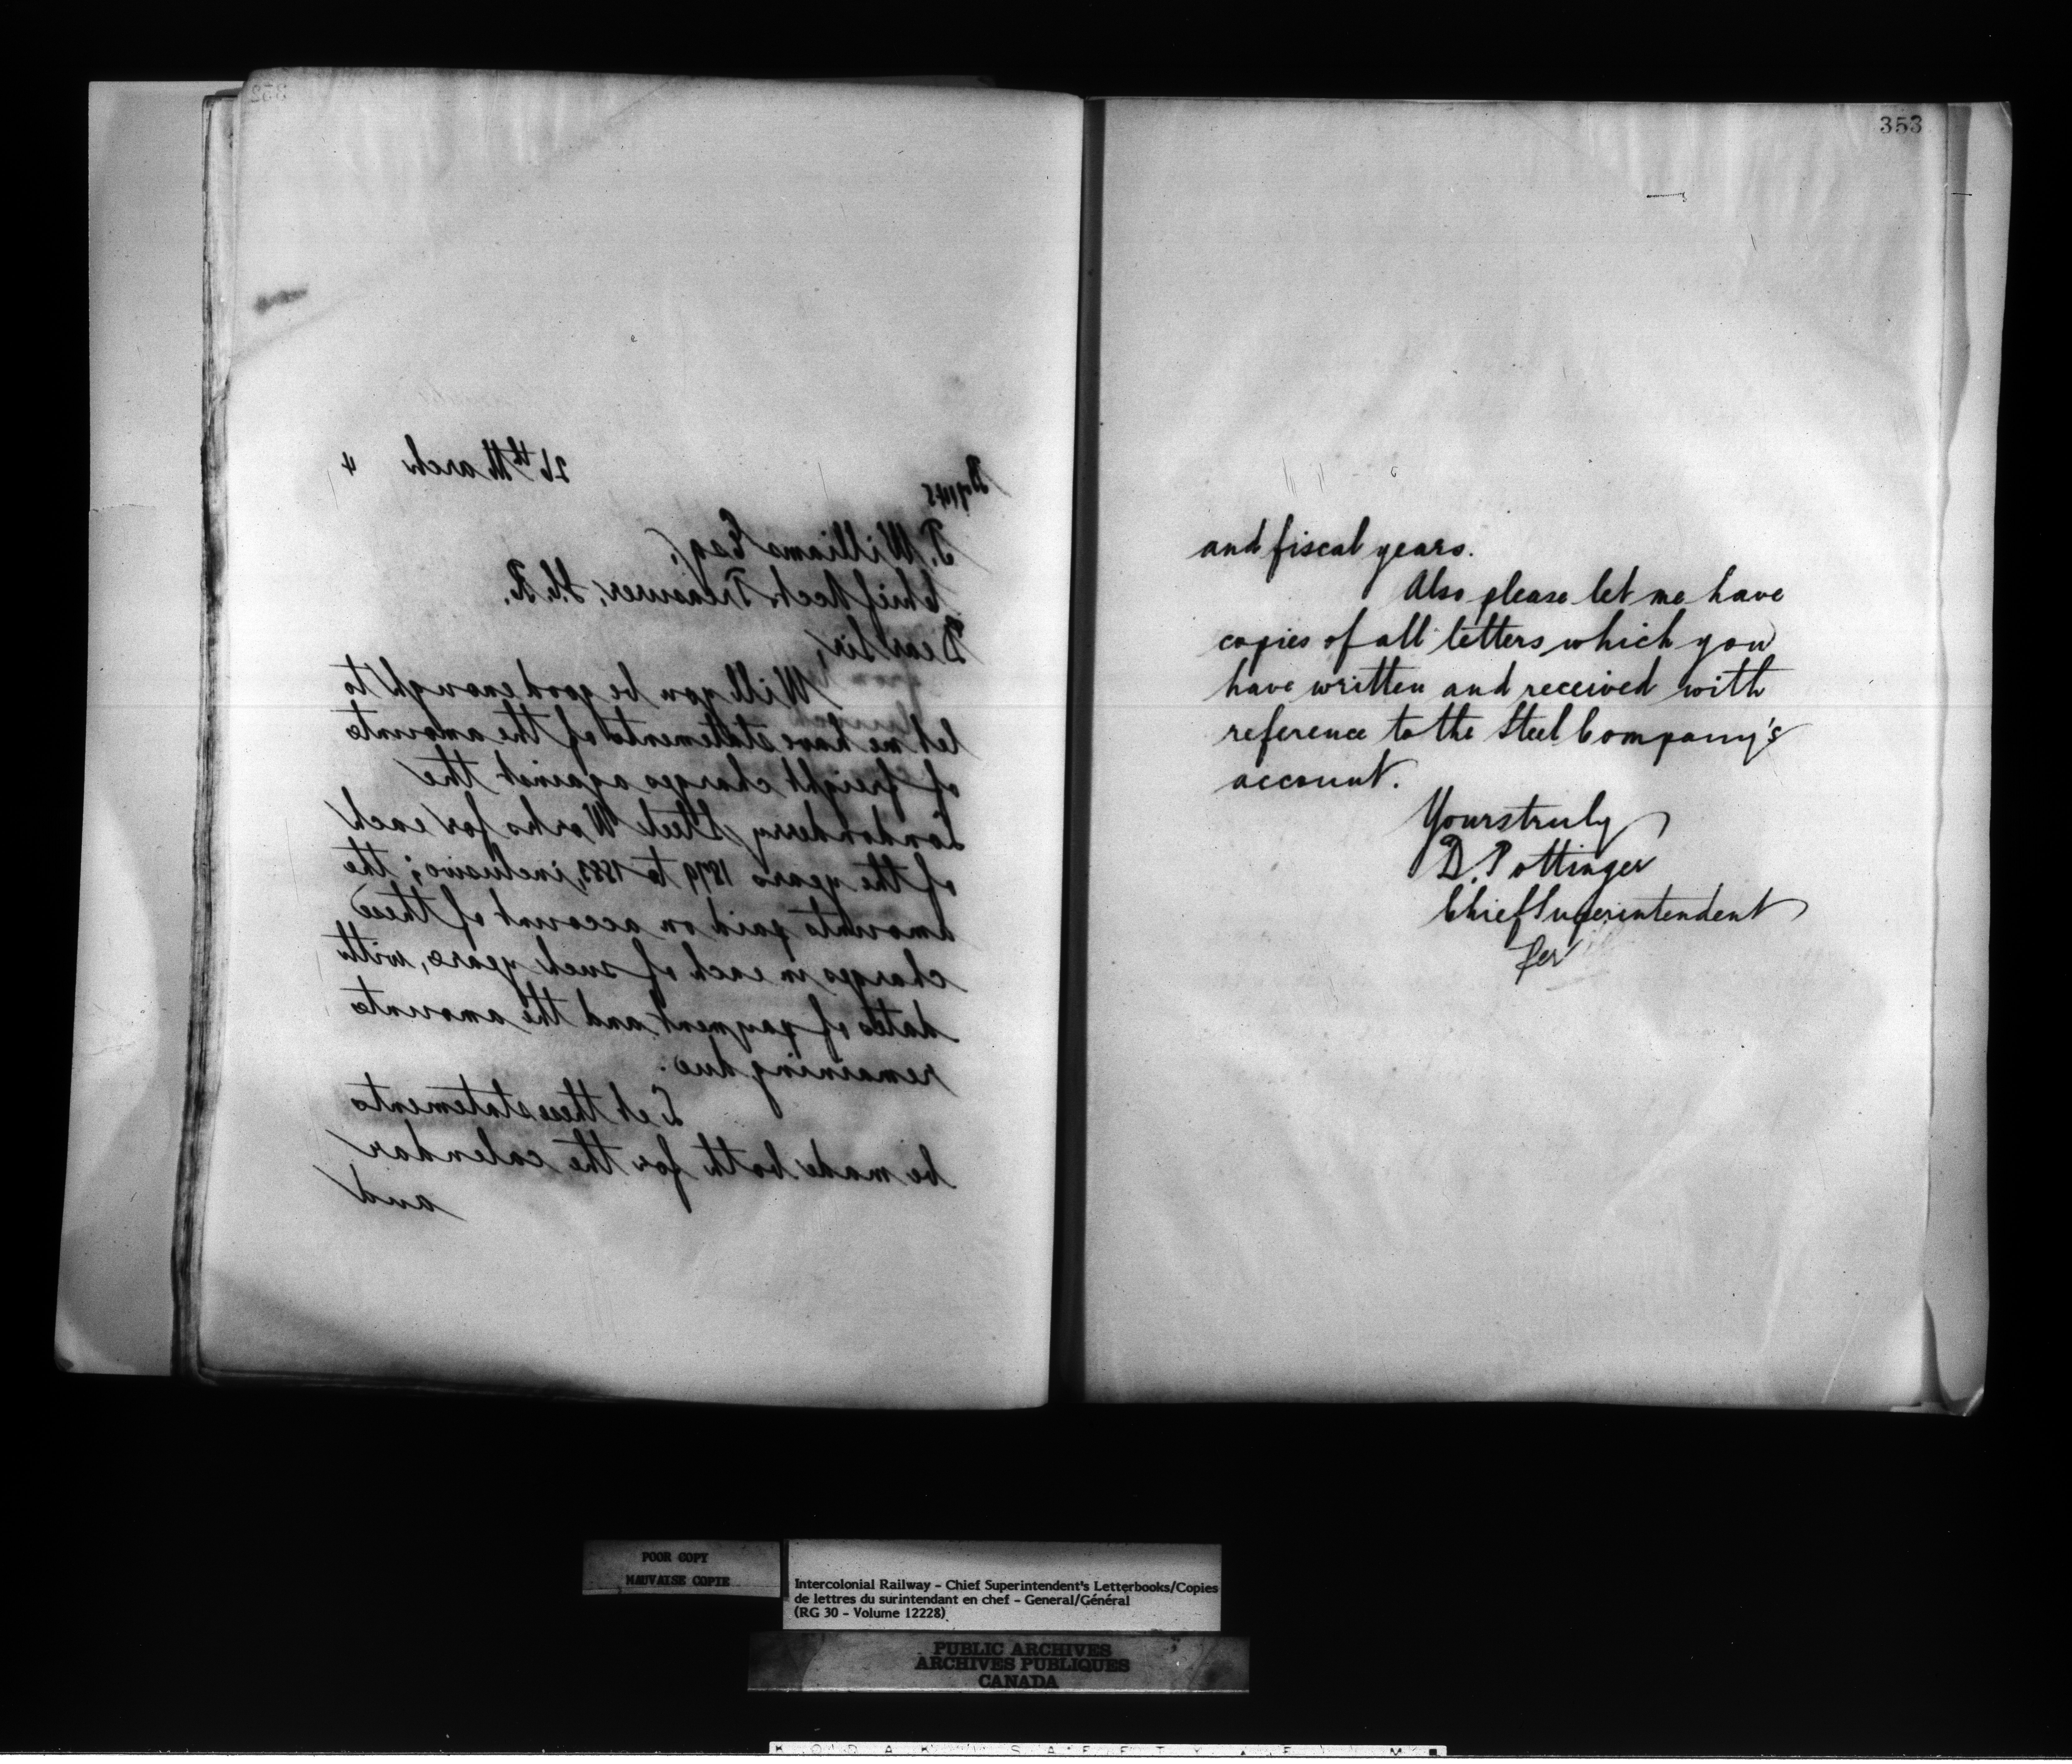 352
26th March 4
T. Williams Esq,
Chief Acct. & Treasurer, I.C.R.
Dear Sir,
Will you be good enough to
let me have statements of the amounts
of freight charges against the
Londonderry Steel Works for each
of the years 1879 to 1883, inclusive; the
amounts paid on account of these
charges in each of such years, with
dates of payment and the amounts
remaining due.
Let these statements
be made both for the calendar
and
353
and fiscal years.
Also please let me have
copies of all letters which you
have written and received with
reference to the Steel Company's
account.
Yours truly
D. Pottinger
Chief Superintendent
Per
POOR COPY
MAUVAISE COPIE
Intercolonial Railway - Chief Superintendent's Letterbooks/Copies
de lettres du surintendant en chef - General/Général
(RG 30 - Volume 12228)
PUBLIC ARCHIVES
ARCHIVES PUBLIQUES
CANADA
K O D A K S A F E T Y F I L M